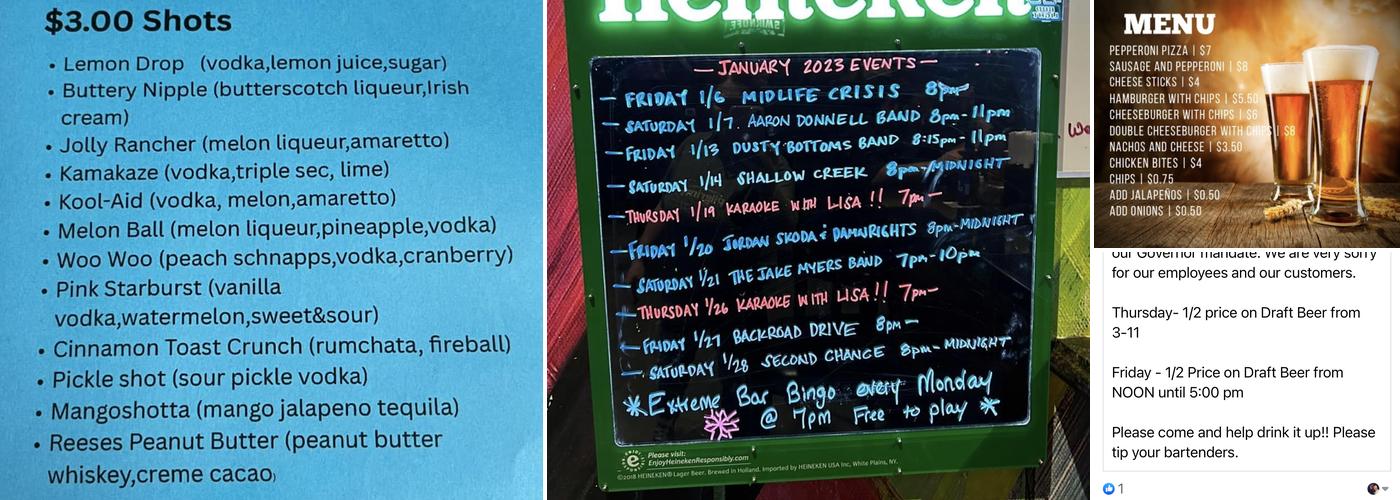 $3.00 Shots
• Lemon Drop (vodka,lemon juice,sugar)
• Buttery Nipple (butterscotch liqueur,Irish
cream)
• Jolly Rancher (melon liqueur,amaretto)
• Kamakaze (vodka,triple sec, lime)
• Kool-Aid (vodka, melon,amaretto)
• Melon Ball (melon liqueur,pineapple,vodka)
• Woo Woo (peach schnapps,vodka,cranberry)
• Pink Starburst (vanilla
vodka,watermelon,sweet&sour)
• Cinnamon Toast Crunch (rumchata, fireball)
• Pickle shot (sour pickle vodka)
• Mangoshotta (mango jalapeno tequila)
• Reeses Peanut Butter (peanut butter
whiskey,creme cacao)
Heineken
— JANUARY 2023 EVENTS —
— FRIDAY 1/6 MIDLIFE CRISIS 8pm-
— SATURDAY 1/7. AARON DONNELL BAND 8pm-11pm
— FRIDAY 1/13 DUSTY BOTTOMS BAND 8:15pm-11pm
— SATURDAY 1/14 SHALLOW CREEK 8pm-MIDNIGHT
— THURSDAY 1/19 KARAOKE WITH LISA !! 7pm—
— FRIDAY 1/20 JORDAN SKODA & DAMNRIGHTS 8pm-MIDNIGHT
— SATURDAY 1/21 THE JAKE MYERS BAND 7pm-10pm
— THURSDAY 1/26 KARAOKE WITH LISA!! 7pm—
— FRIDAY 1/27 BACKROAD DRIVE 8pm—
— SATURDAY 1/28 SECOND CHANCE 8pm-MIDNIGHT
*Extreme Bar Bingo every Monday
@ 7pm Free to play *
Please visit:
EnjoyHeinekenResponsibly.com
©2018 HEINEKEN® Lager Beer. Brewed in Holland. Imported by HEINEKEN USA Inc, White Plains, NY.
MENU
PEPPERONI PIZZA | $7
SAUSAGE AND PEPPERONI | $8
CHEESE STICKS | $4
HAMBURGER WITH CHIPS | $5.50
CHEESEBURGER WITH CHIPS | $6
DOUBLE CHEESEBURGER WITH CHIPS | $8
NACHOS AND CHEESE | $3.50
CHICKEN BITES | $4
CHIPS | $0.75
ADD JALAPEÑOS | $0.50
ADD ONIONS | $0.50
our Governor mandate. We are very sorry
for our employees and our customers.
Thursday- 1/2 price on Draft Beer from
3-11
Friday - 1/2 Price on Draft Beer from
NOON until 5:00 pm
Please come and help drink it up!! Please
tip your bartenders.
1